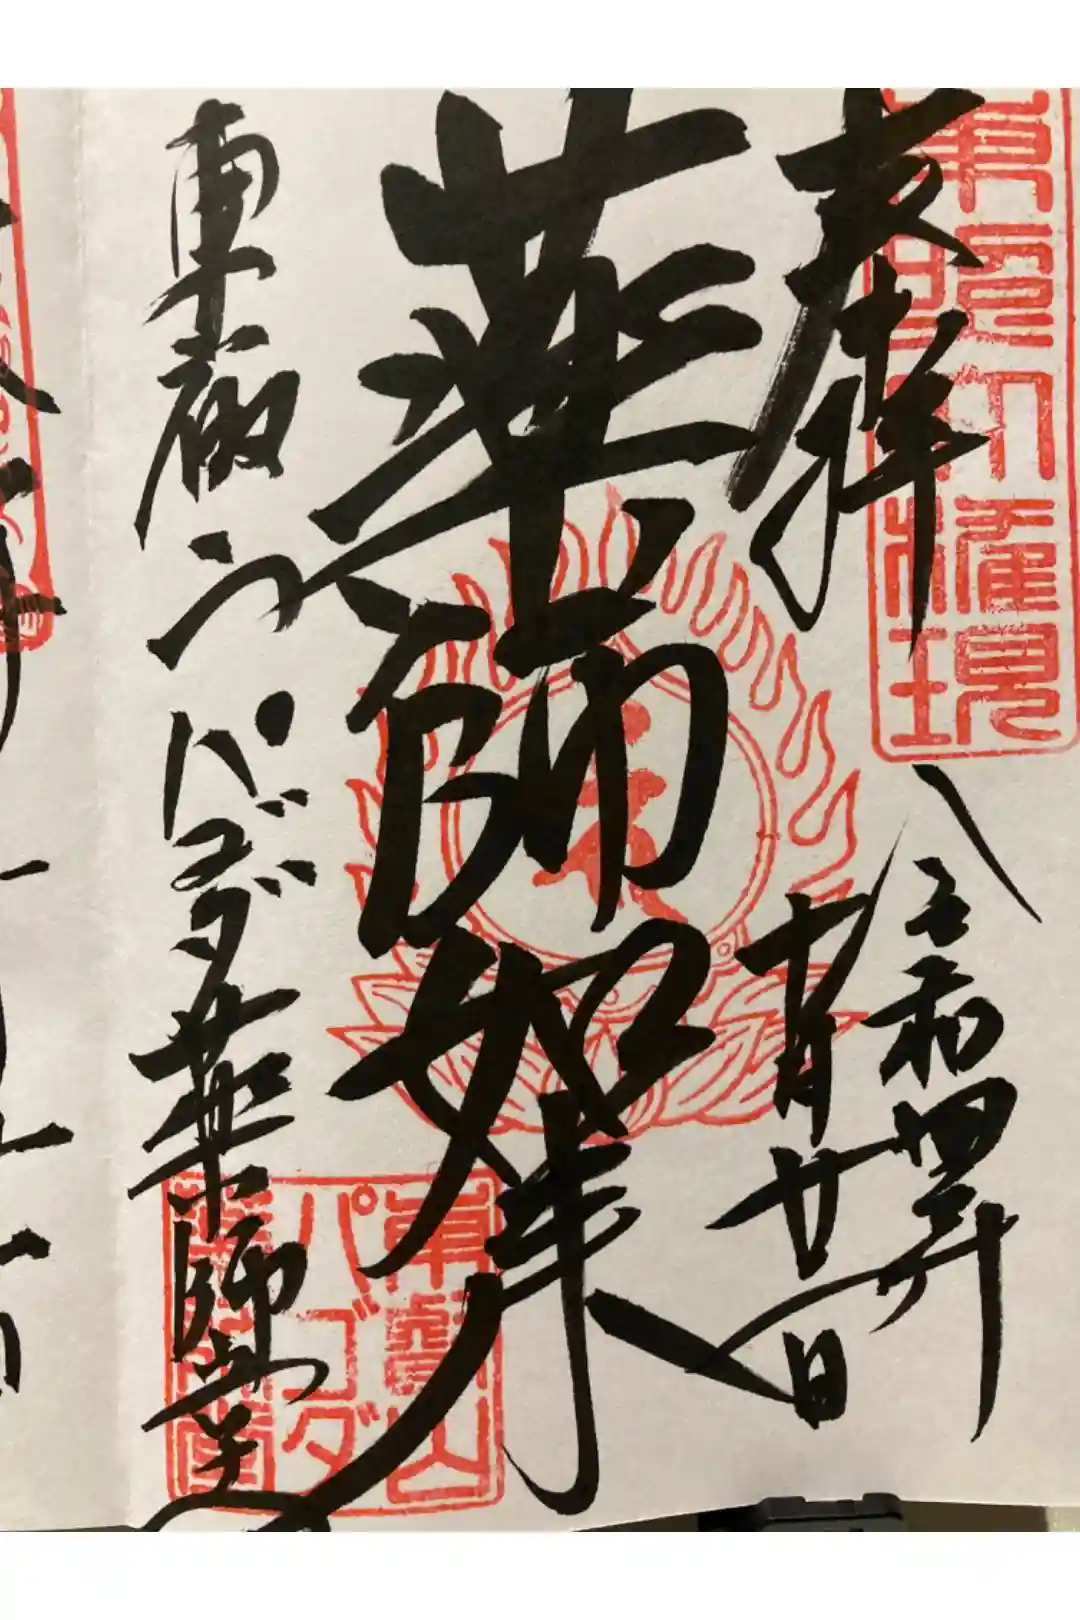 奉拝
令和四年
十月廿日
薬師如来
東叡山パゴダ薬師堂
東照大権現
東叡山
パゴダ
薬師堂